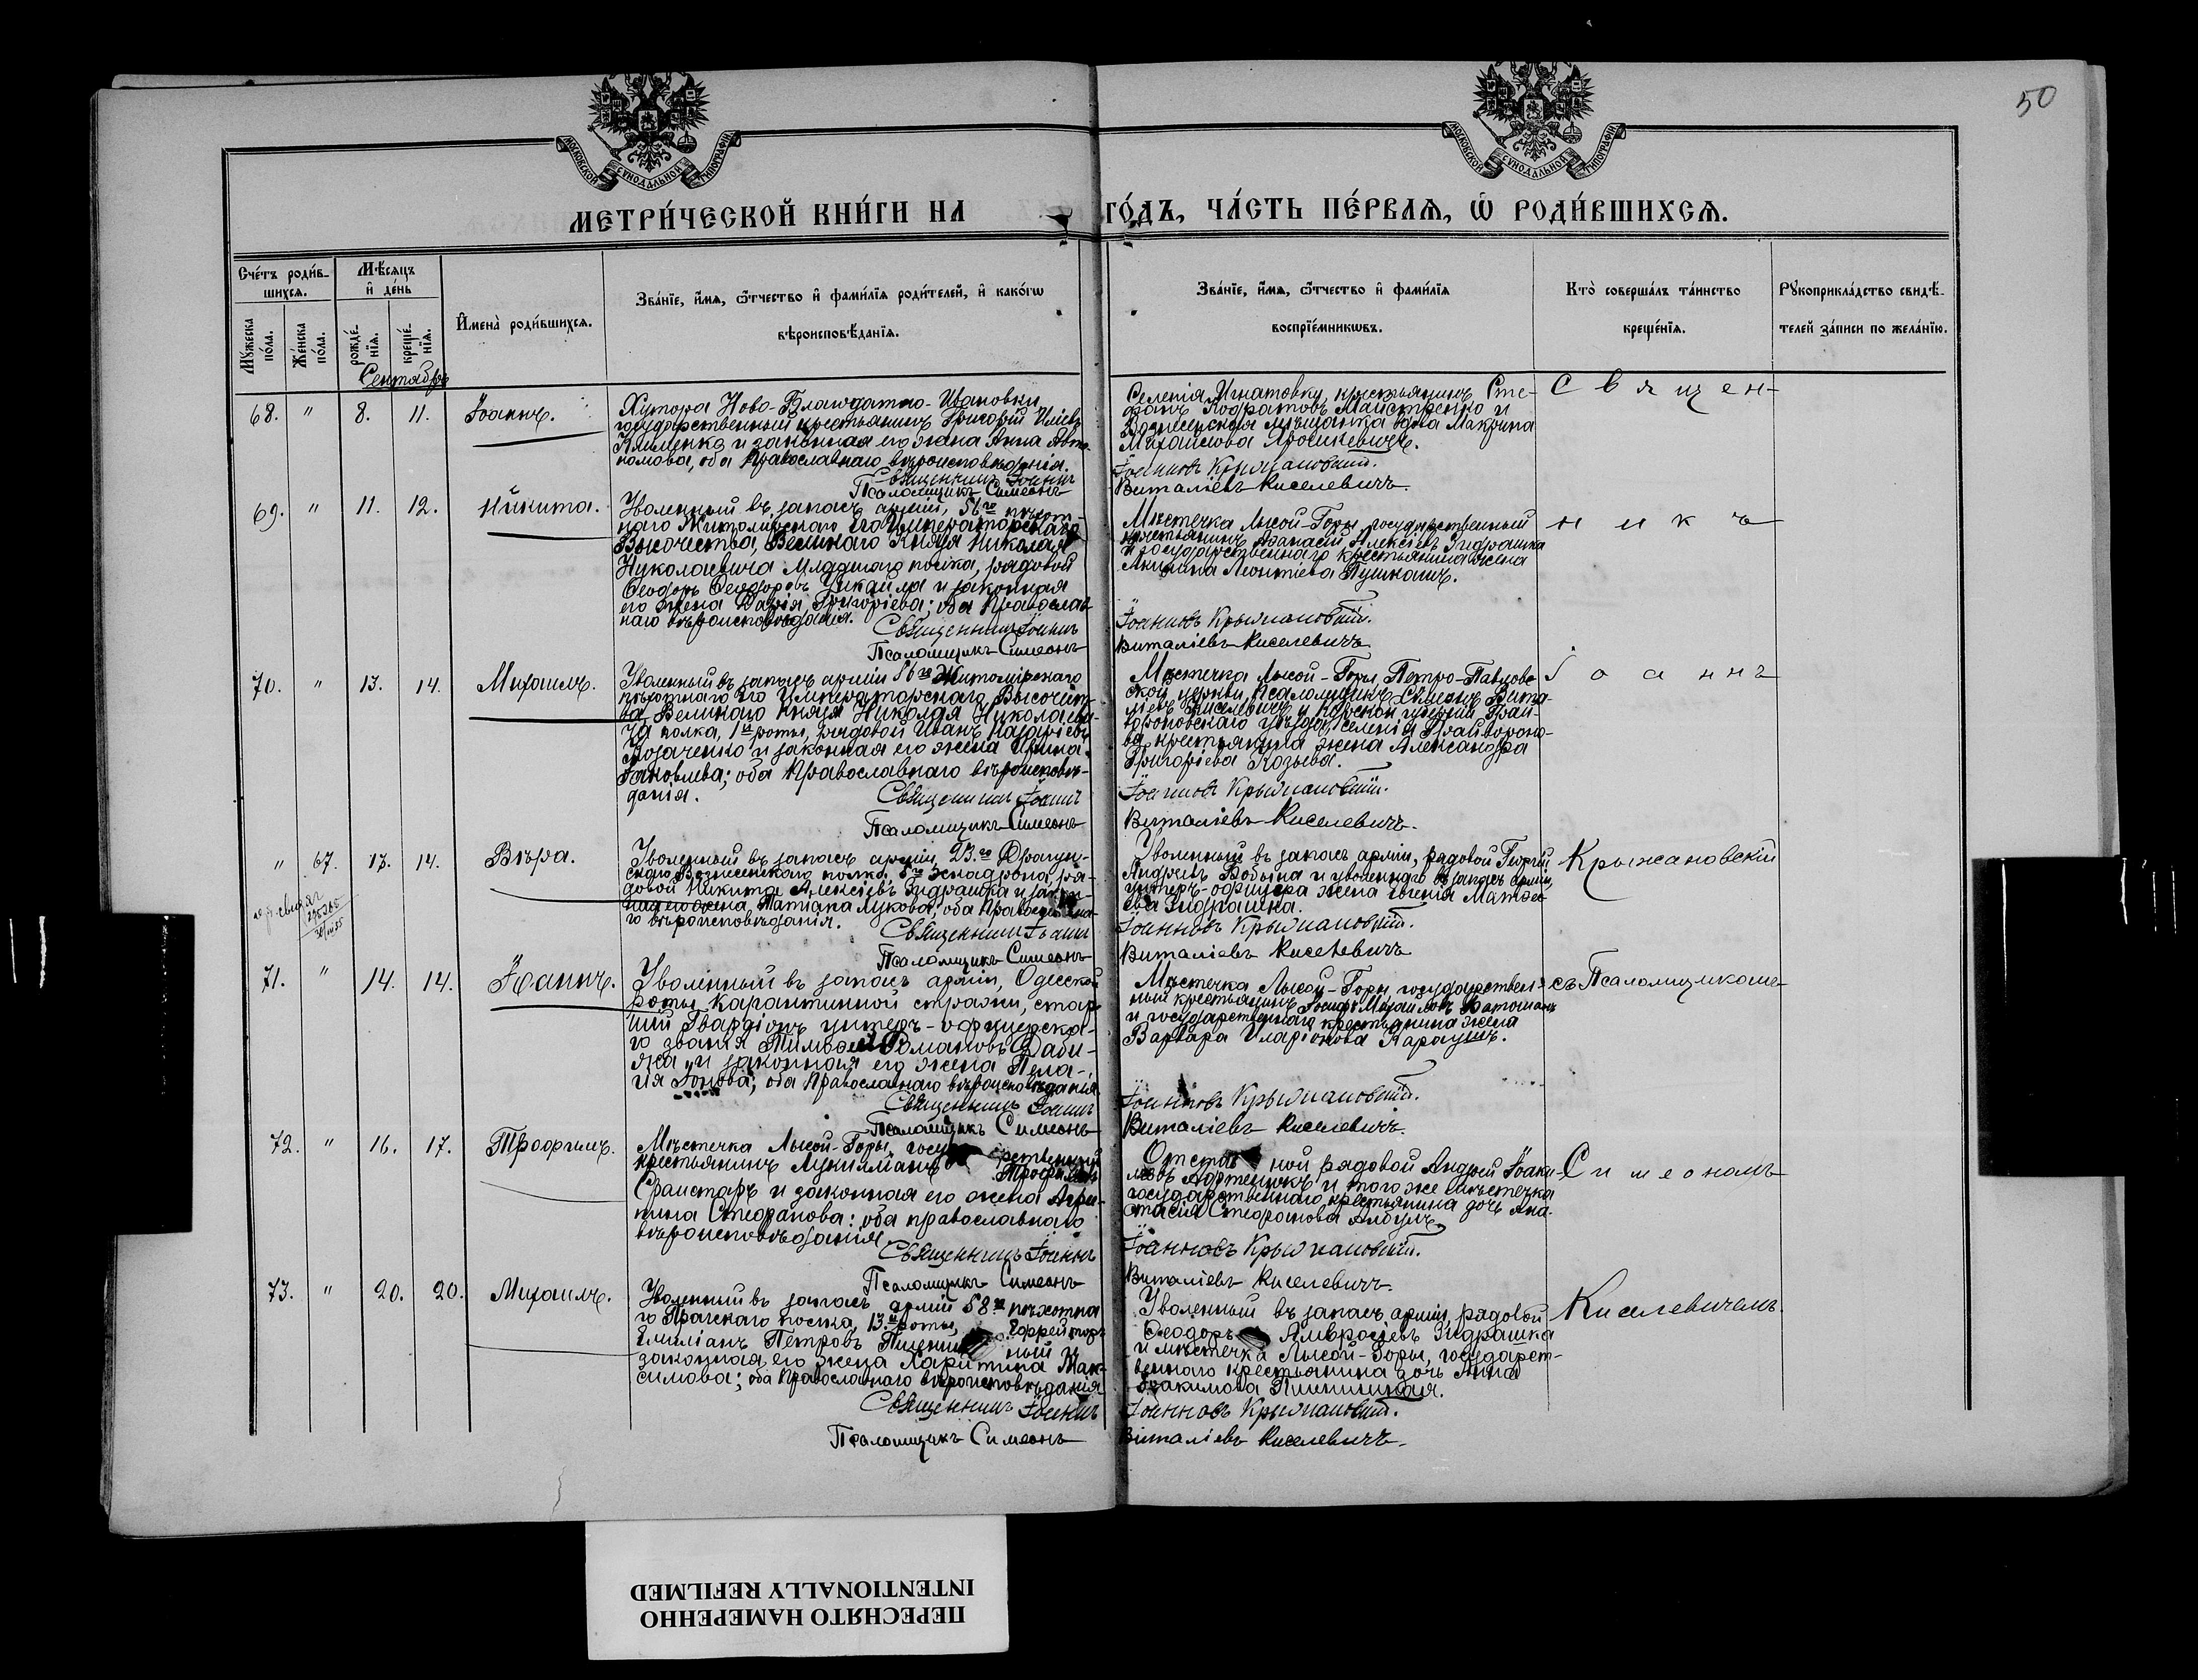 50
МОСКОВСКОЙ СѴНОДАЛЬНОЙ ТИПОГРАФІИ
МОСКОВСКОЙ СѴНОДАЛЬНОЙ ТИПОГРАФІИ
МЕТРИ́ЧЕСКОЙ КНИ́ГИ НА ГО́ДЪ, ЧА́СТЬ ПЕ́РВАѦ, Ѡ҆ РОДИ́ВШИХСѦ.
Сче́тъ роди́в-
шихсѧ.
Мѣ́сѧцъ
и҆ де́нь
Мꙋ́жеска по́ла.
Же́нска по́ла.
рожде́нїѧ.
креще́нїѧ.
И҆мена̀ роди́вшихсѧ.
Зва́нїе, и҆́мѧ, ѻ҆́тчество и҆ фами́лїѧ роди́телей, и҆ како́гѡ
вѣроисповѣ́данїѧ.
Зва́нїе, и҆́мѧ, ѻ҆́тчество и҆ фами́лїѧ
воспрїе́мникѡвъ.
Кто̀ соверша́лъ та́инство
креще́нїѧ.
Рꙋкоприкла́дство свидѣ́-
телей за́писи по жела́нїю.
Сентябрь
68. " 8. 11. Іоаннъ.
Хутора Ново-Благодатно-Ивановки,
государственный крестьянинъ Григорій Иліевъ
Клименко и законная его жена Анна Авто-
номова, оба Православнаго вѣроисповѣданія.
Священникъ Іоаннъ
Псаломщикъ Симеонъ
Селенія Игнатовки, крестьянинъ Сте-
фанъ Кодратовъ Майстренко и
Вознесенская мѣщанка вдова Макрина
Михайлова
Іоанновъ Крыжановскій.
Виталіевъ Киселевичъ.
Священ-
69. " 11. 12. Никита.
Уволенный въ запасъ арміи, 56го пѣхот-
наго Житомірскаго Его Императорскаго
Высочества, Великаго Князя Николая
Николаевича Младшаго полка, рядовой
Ѳеодоръ Ѳеодоровъ и законная
его жена Дарія Григоріева; оба Православ-
наго вѣроисповѣданія.
Священникъ Іоаннъ
Псаломщикъ Симеонъ
Мѣстечка Лысой-Горы, государственный
крестьянинъ Аѳанасій Алексіевъ Гидрашка
и государственнаго крестьянина жена
Акилина Леонтіева Пушкашъ.
Іоанновъ Крыжановскій.
Виталіевъ Киселевичъ
никъ
70. " 13. 14. Михаилъ.
Уволенный въ запасъ арміи 56го Житомірскаго
пѣхотнаго Его Императорскаго Высочест-
ва Великаго Князя Николая Николаеви-
ча полка, 1й роты, рядовой Иванъ Назаріевъ
Козаченко и законная его жена Ирина
Іаковлева; оба Православнаго вѣроисповѣ-
данія.
Священникъ Іоаннъ
Псаломщикъ Симеонъ
Мѣстечка Лысой-Горы, Петро-Павлов-
ской церкви, Псаломщикъ Симеонъ Вита-
ліевъ Киселевичъ и Курской губерніи Грай-
вороновскаго уѣзда, селенія Грайвороно-
ва крестьянина жена Александра
Григоріева Козьева.
Іоанновъ Крыжановскій.
Виталіевъ Киселевичъ.
Іоаннъ
" 67. 13. 14. Вѣра.
295265
Уволенный въ запасъ арміи, 23.го Драгун-
скаго Вознесенскаго полка, 5го эскадрона ря-
довой Никита Алексіевъ Гидрашка и закон-
ная его жена Татіана Лукова; оба Православна-
го вѣроисповѣданія.
Священникъ Іоаннъ
Псаломщикъ Симеонъ
Уволенный въ запасъ арміи, рядовой Георгій
Андреевъ Бобына и уволеннаго въ запасъ арміи,
унтеръ-офицера жена Евгенія Матѳе-
ева Гидрашка.
Іоанновъ Крыжановскій.
Виталіевъ Киселевичъ
Крыжановскій
71. " 14. 14. Іоаннъ.
Уволенный въ запасъ арміи, Одесской
роты карантинной стражи, стар-
шій Гвардіонъ унтеръ-офицерска-
го званія Тимоѳей Романовъ Даби-
жа и законная его жена Пела-
гія Іонова; оба Православнаго вѣроисповѣданія.
Священникъ Іоаннъ
Псаломщикъ Симеонъ
Мѣстечка Лысой-Горы государствен-
ный крестьянинъ Іосифъ Михайловъ
и государственнаго крестьянина жена
Варвара Иларіонова Караушъ.
Іоанновъ Крыжановскій.
Виталіевъ Киселевичъ.
съ Псаломщикоме-
72. " 16. 17. Трофимъ.
Мѣстечка Лысой-Горы, государственный
крестьянинъ Лукилліанъ Трофимовъ
и законная его жена Агри-
пина Стефанова: оба православнаго
вѣроисповѣданія.
Священникъ Іоаннъ
Псаломщикъ Симеонъ
Отставной рядовой Андрей Іоаки-
мовъ и того же мѣстечка
государственнаго крестьянина дочь Ана-
стасія Стефанова Албулъ.
Іоанновъ Крыжановскій.
Виталіевъ Киселевичъ.
Симеономъ
73. " 20. 20. Михаилъ.
Уволенный въ запасъ арміи 58го пѣхотна-
го Прагскаго полка, 13.й роты, Ефрейторъ
Емиліанъ Петровъ Пшеничный и
законная его жена Харитина Мак-
симова; оба Православнаго вѣроисповѣданія
Священникъ Іоаннъ
Псаломщикъ Симеонъ
Уволенный въ запасъ арміи, рядовой
Ѳеодоръ Амвросіевъ Гидрашка
и мѣстечка Лысой-Горы, государст-
веннаго крестьянина дочь Анна
Іоакимова Пшеничная.
Іоанновъ Крыжановскій.
Виталіевъ Киселевичъ.
Киселевичемъ.
ПЕРЕСНЯТО НАМЕРЕННО
INTENTIONALLY REFILMED